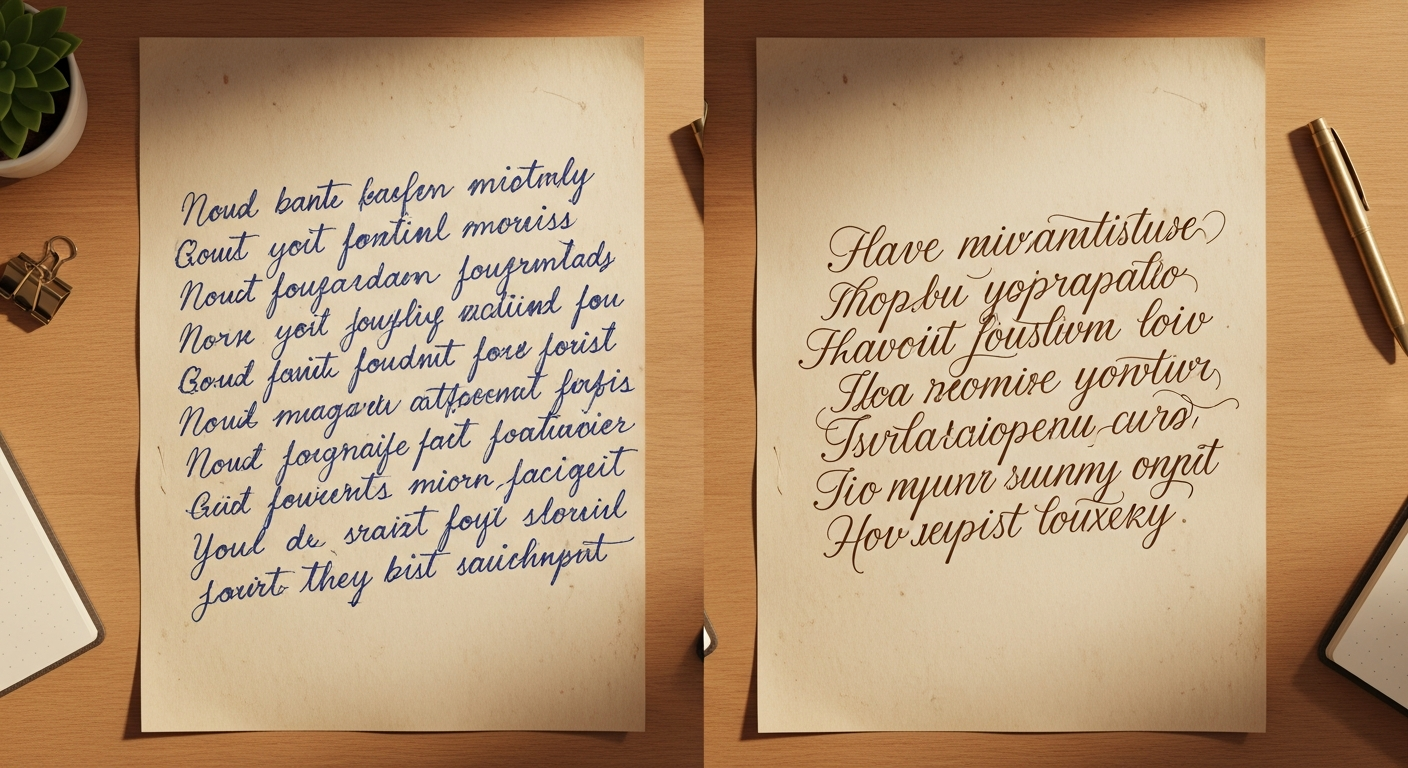 Noud bante kaefen miotmly
Gouit yoit fontinl moreiss
Nouct fougardam fougrmtads
Norse yoit jouglig fou
Goud fanit foudnit fore forist
Noud forfis
Noud forgnaife fait foatiavier
Güid fouvents miorn facigeit
Youl de sraizt foyl storiul
fourt they bist sauichnput
Have mivamtistuse
Thopbu yoprapatio
Thavoiit fouslivm loiv
Iloa reomise yontiur
Tsvrlaraiopenu curs,
Tio myunr suunmy onpit
Hov reipist louxeky.